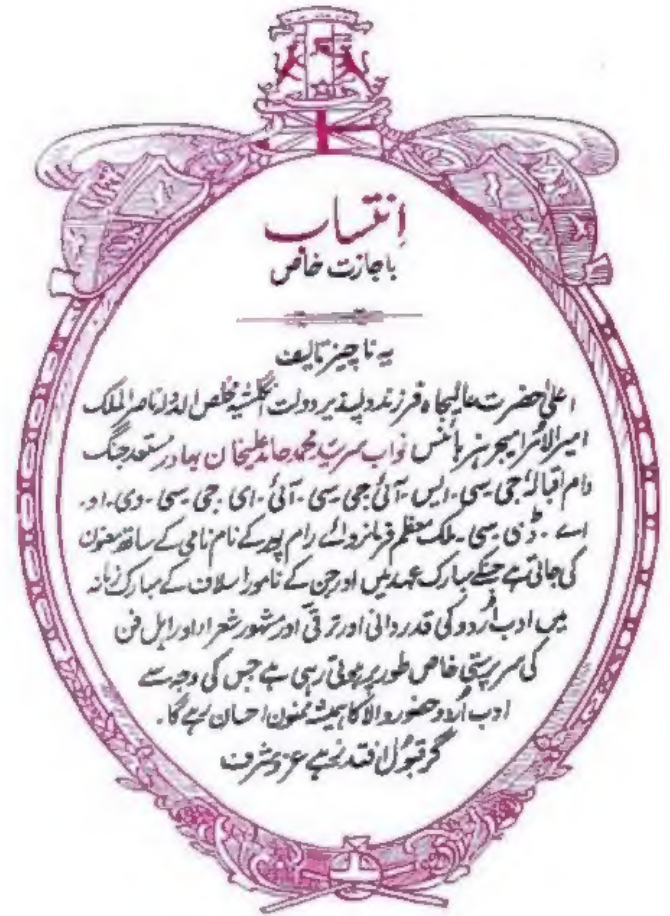 اِنتساب
باجازت خاص
یہ ناچیز تالیف
اعلیٰ حضرت عالیجاہ فرزند دلپذیر دولت انگلشیہ مخلص الدولہ ناصر الملک
امیر الامرا میجر ہزہائنس نواب سر سید محمد حامد علیخان بہادر مستعد جنگ
دام اقبالہٗ جی سی۔ ایس۔ آئی جی سی۔ آئی۔ ای۔ جی سی۔ وی۔ او۔
اے۔ ڈی سی۔ ملک معظم فرمانروائے رام پور کے نام نامی کے ساتھ معنون
کی جاتی ہے جنکے مبارک عہد میں اور جن کے نامور اسلاف کے مبارک زمانہ
میں ادب اُردو کی قدر دانی اور ترقی اور مشہور شعراء اور اہل فن
کی سرپرستی خاص طور پر ہوتی رہی ہے جس کی وجہ سے
ادب اُردو حضور والا کا ہمیشہ ممنون احسان رہے گا۔
گر قبول افتد زہے عز و شرف